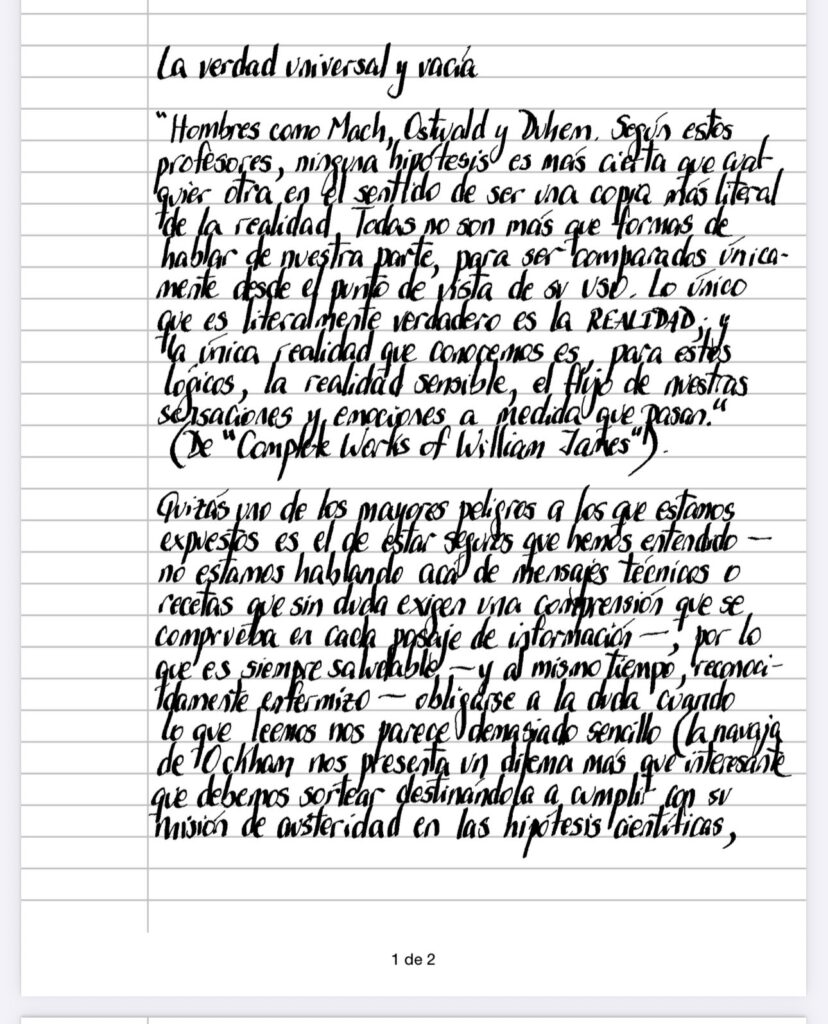 La verdad universal y vacía
"Hombres como Mach, Ostwald y Duhem. Según estos
profesores, ninguna hipótesis es más cierta que cual-
quier otra en el sentido de ser una copia más literal
de la realidad. Todas no son más que formas de
hablar de nuestra parte, para ser comparadas única-
mente desde el punto de vista de su uso. Lo único
que es literalmente verdadero es la REALIDAD; y
la única realidad que conocemos es, para estos
lógicos, la realidad sensible, el flujo de nuestras
sensaciones y emociones a medida que pasan."
(De "Complete Works of William James").
Quizás uno de los mayores peligros a los que estamos
expuestos es el de estar seguros que hemos entendido —
no estamos hablando acá de mensajes técnicos o
recetas que sin duda exigen una comprensión que se
comprueba en cada pasaje de información —, por lo
que es siempre saludable — y al mismo tiempo, reconoci-
damente enfermizo — obligarse a la duda cuando
lo que leemos nos parece demasiado sencillo (la navaja
de Ockham nos presenta un dilema más que interesante
que debemos sortear destinándola a cumplir con su
misión de austeridad en las hipótesis científicas,
1 de 2